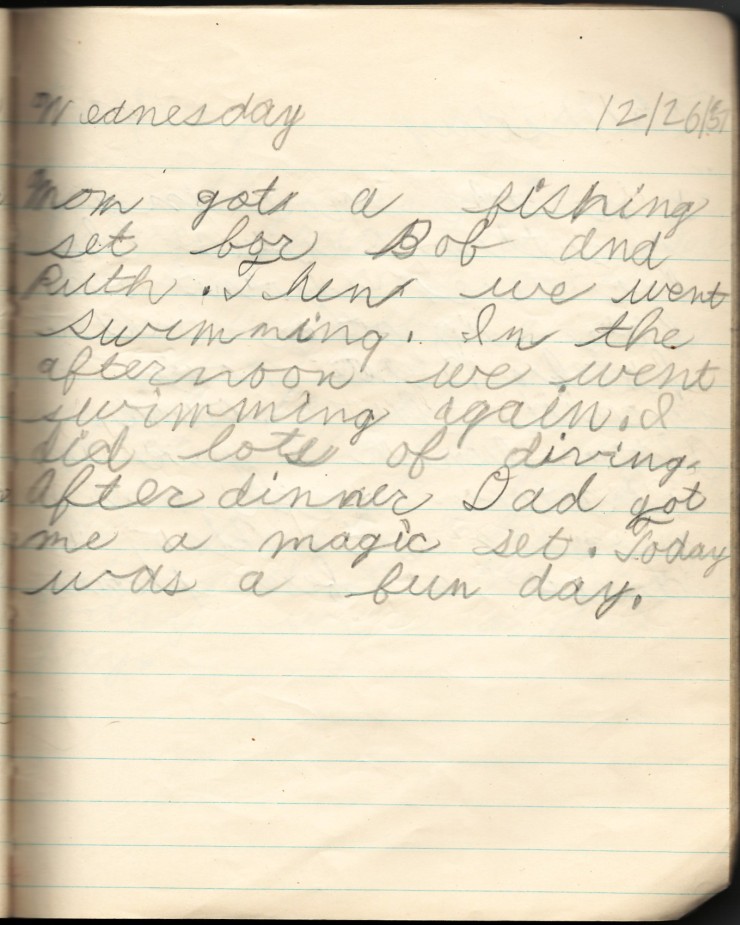 Wednesday 12/26/51
Mom got a fishing
set for Bob and
Ruth. Then we went
swimming. In the
afternoon we went
swimming again. I
did lots of diving.
After dinner Dad got
me a magic set. Today
was a fun day.